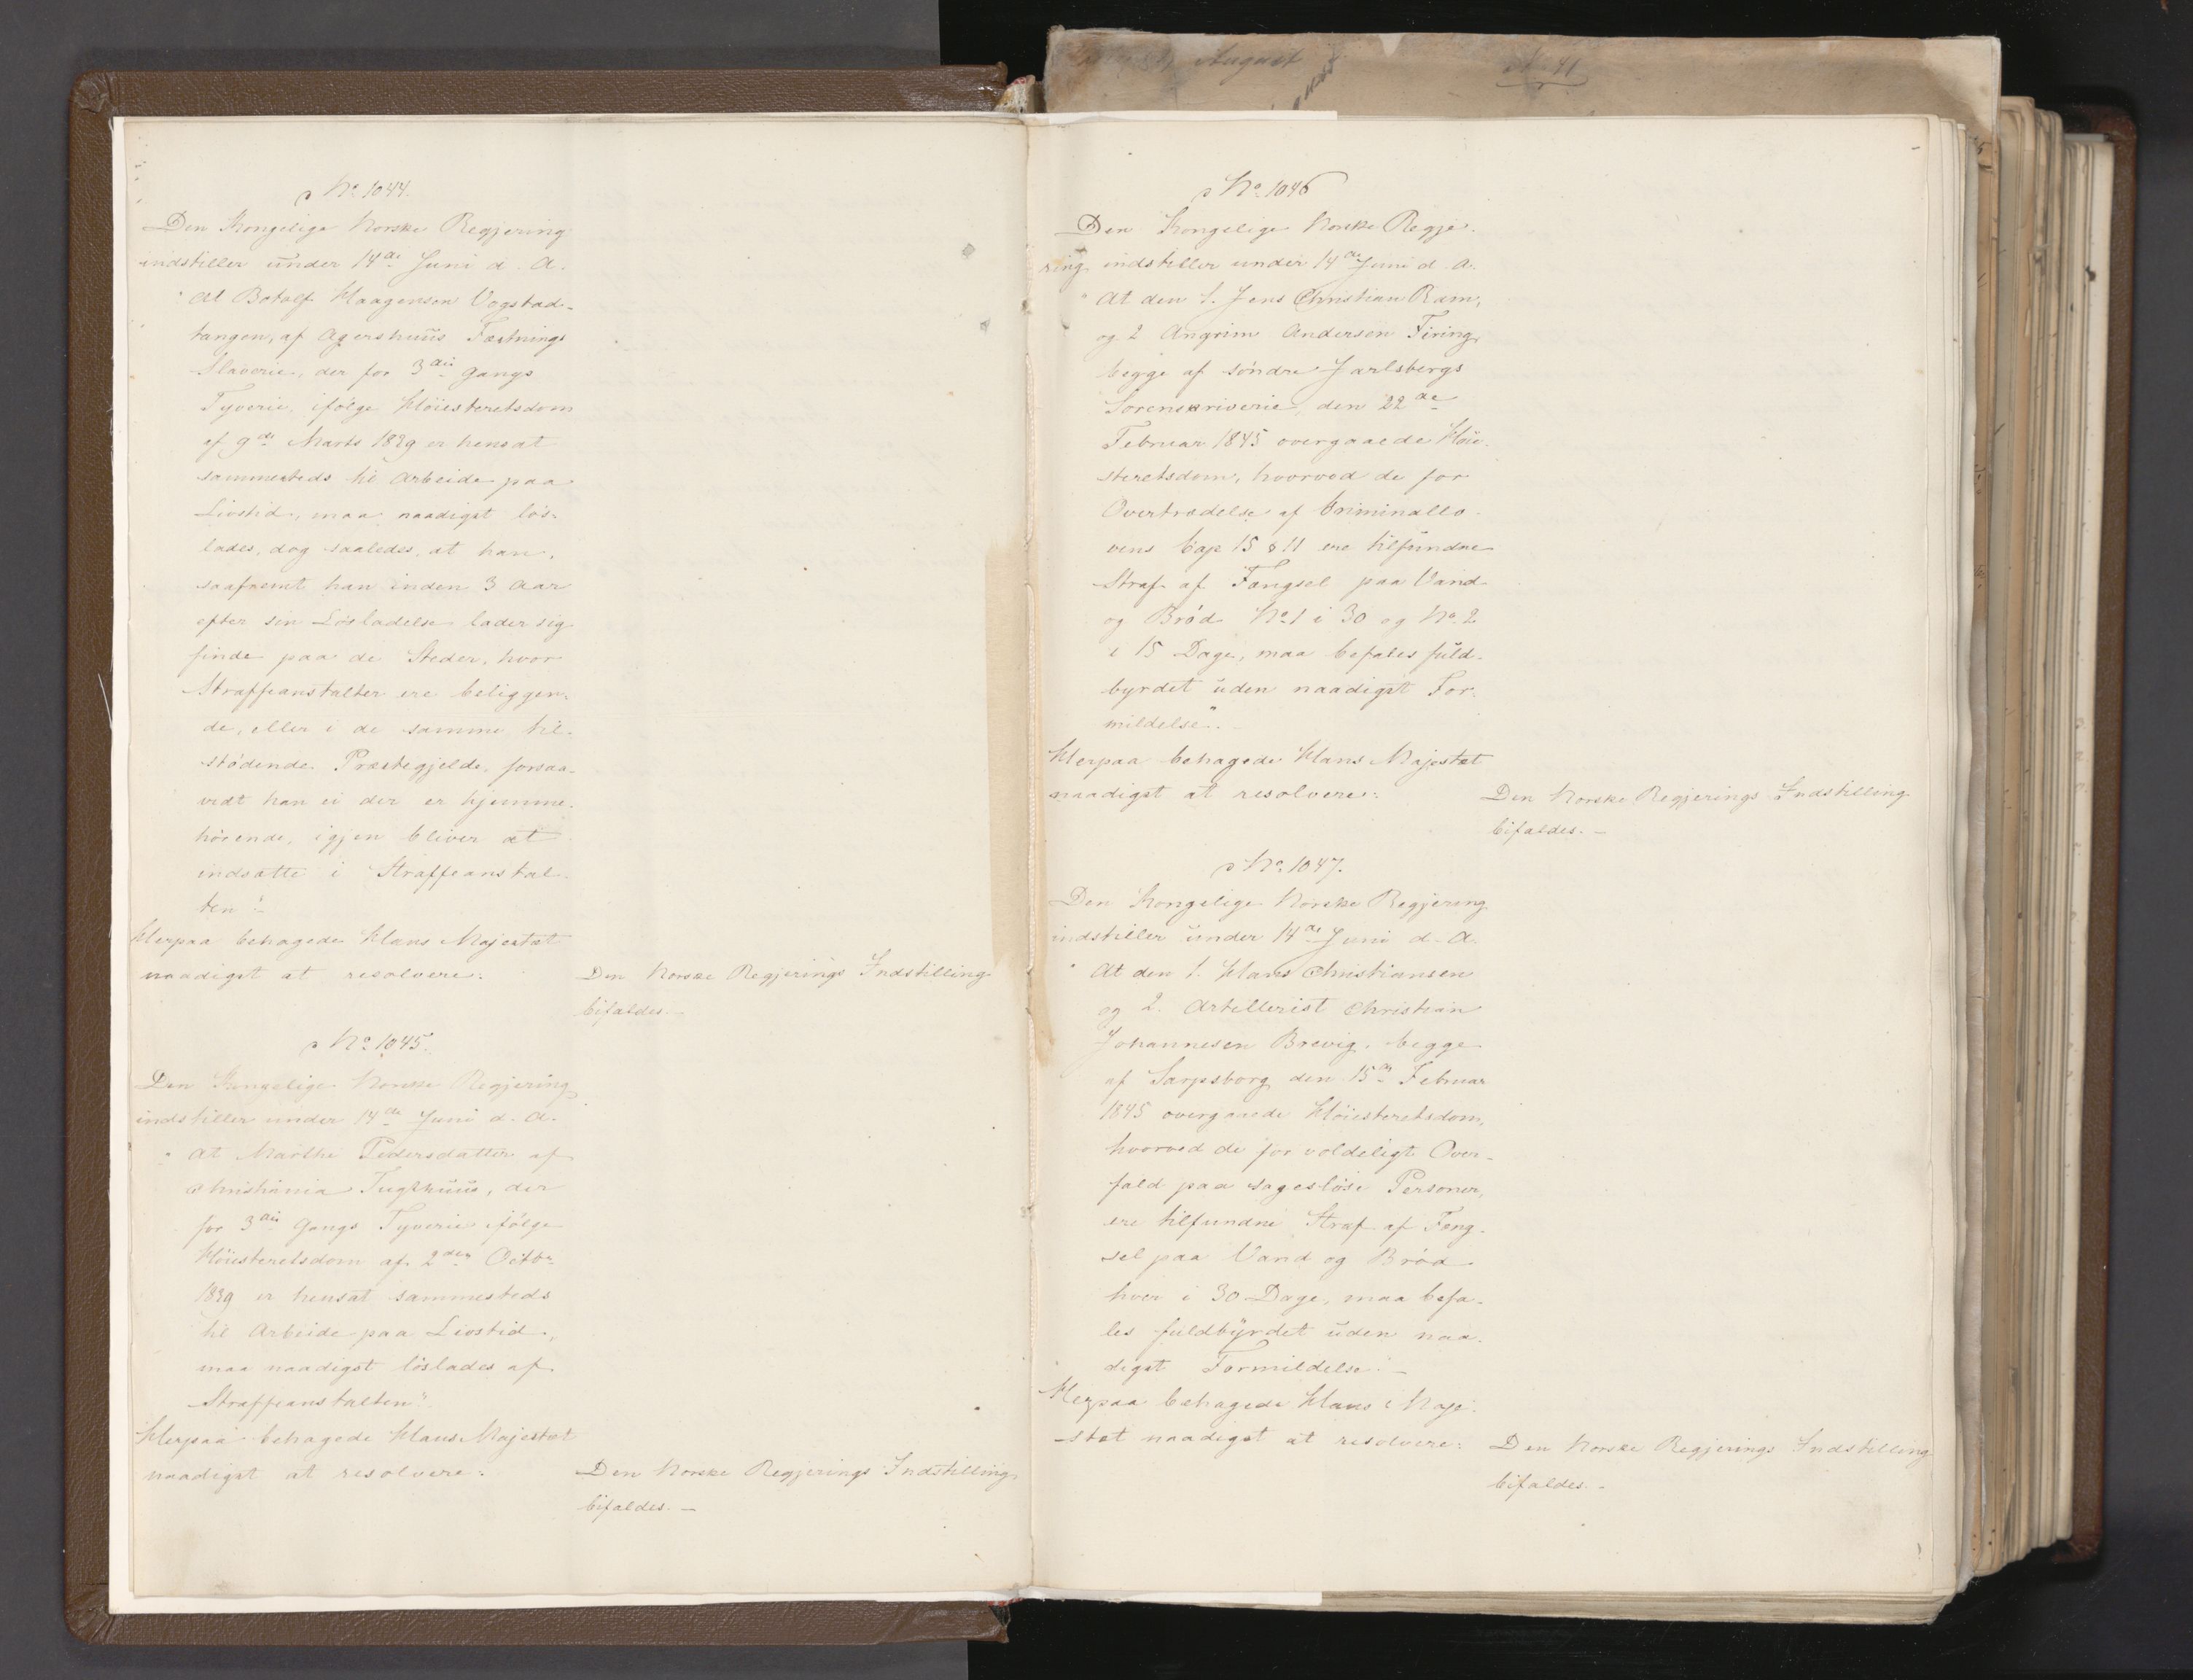 No 1044.
Den Kongelige Norske Regjering
indstiller under 14de Juni d. A.
"At Botolf Haagensen Vogstad-
tangen, af Agershuus Fæstnings
Slaverie, der for 3die Gangs
Tyverie, ifølge Høiesteretsdom
af 9de Marts 1839 er hensat
sammesteds til Arbeide paa
Livstid, maa naadigst løs-
lades, dog saaledes, at han,
saafremt han inden 3 Aar
efter sin Løsladelse lader sig
finde paa de Steder, hvor
Straffeanstalter ere beliggen-
de, eller i de samme til-
stødende Præstegjelde, forsaa-
vidt han ei der er hjemme-
hørende, igjen bliver at
indsætte i Straffeanstal-
ten".
Herpaa behagede Hans Majestæt
naadigst at resolvere:
Den Norske Regjerings Indstilling
bifaldes. —
No 1045.
Den Kongelige Norske Regjering
indstiller under 14de Juni d. A.
"At Marthe Pedersdatter af
Christiania Tugthuus, der
for 3die Gangs Tyverie ifølge
Høiesteretsdom af 2den Octbr
1839 er hensat sammesteds
til Arbeide paa Livstid,
maa naadigst løslades af
Straffeanstalten".
Herpaa behagede Hans Majestæt
naadigst at resolvere:
Den Norske Regjerings Indstilling
bifaldes. —
August
No 1046
Den Kongelige Norske Regje-
ring indstiller under 14de Juni d. A.
"At den 1. Jens Christian Ram,
og 2 Angrim Andersen Firing,
begge af søndre Jarlsbergs
Sorenskriverie, den 22de
Februar 1845 overgaaede Høie-
steretsdom, hvorved de for
Overtrædelse af Criminallo-
vens Cap 15 § 11 ere tilfundne
Straf af Fængsel paa Vand
og Brød No 1 i 30 og No 2
i 15 Dage, maa befales fuld-
byrdet uden naadigst For-
mildelse".
Herpaa behagede Hans Majestæt
naadigst at resolvere:
Den Norske Regjerings Indstilling
bifaldes. —
No 1047.
Den Kongelige Norske Regjering
indstiller under 14de Juni d. A.
"At den 1. Hans Christiansen
og 2. Artillerist Christian
Johannesen Brevig, begge
af Sarpsborg den 15de Februar
1845 overgaaede Høiesteretsdom,
hvorved de for voldeligt Over-
fald paa sagesløse Personer,
ere tilfundne Straf af Feng-
sel paa Vand og Brød
hver i 30 Dage, maa befa-
les fuldbyrdet uden naa-
digst Formildelse". —
Herpaa behagede Hans Maje-
stæt naadigst at resolvere:
Den Norske Regjerings Indstilling
bifaldes. -